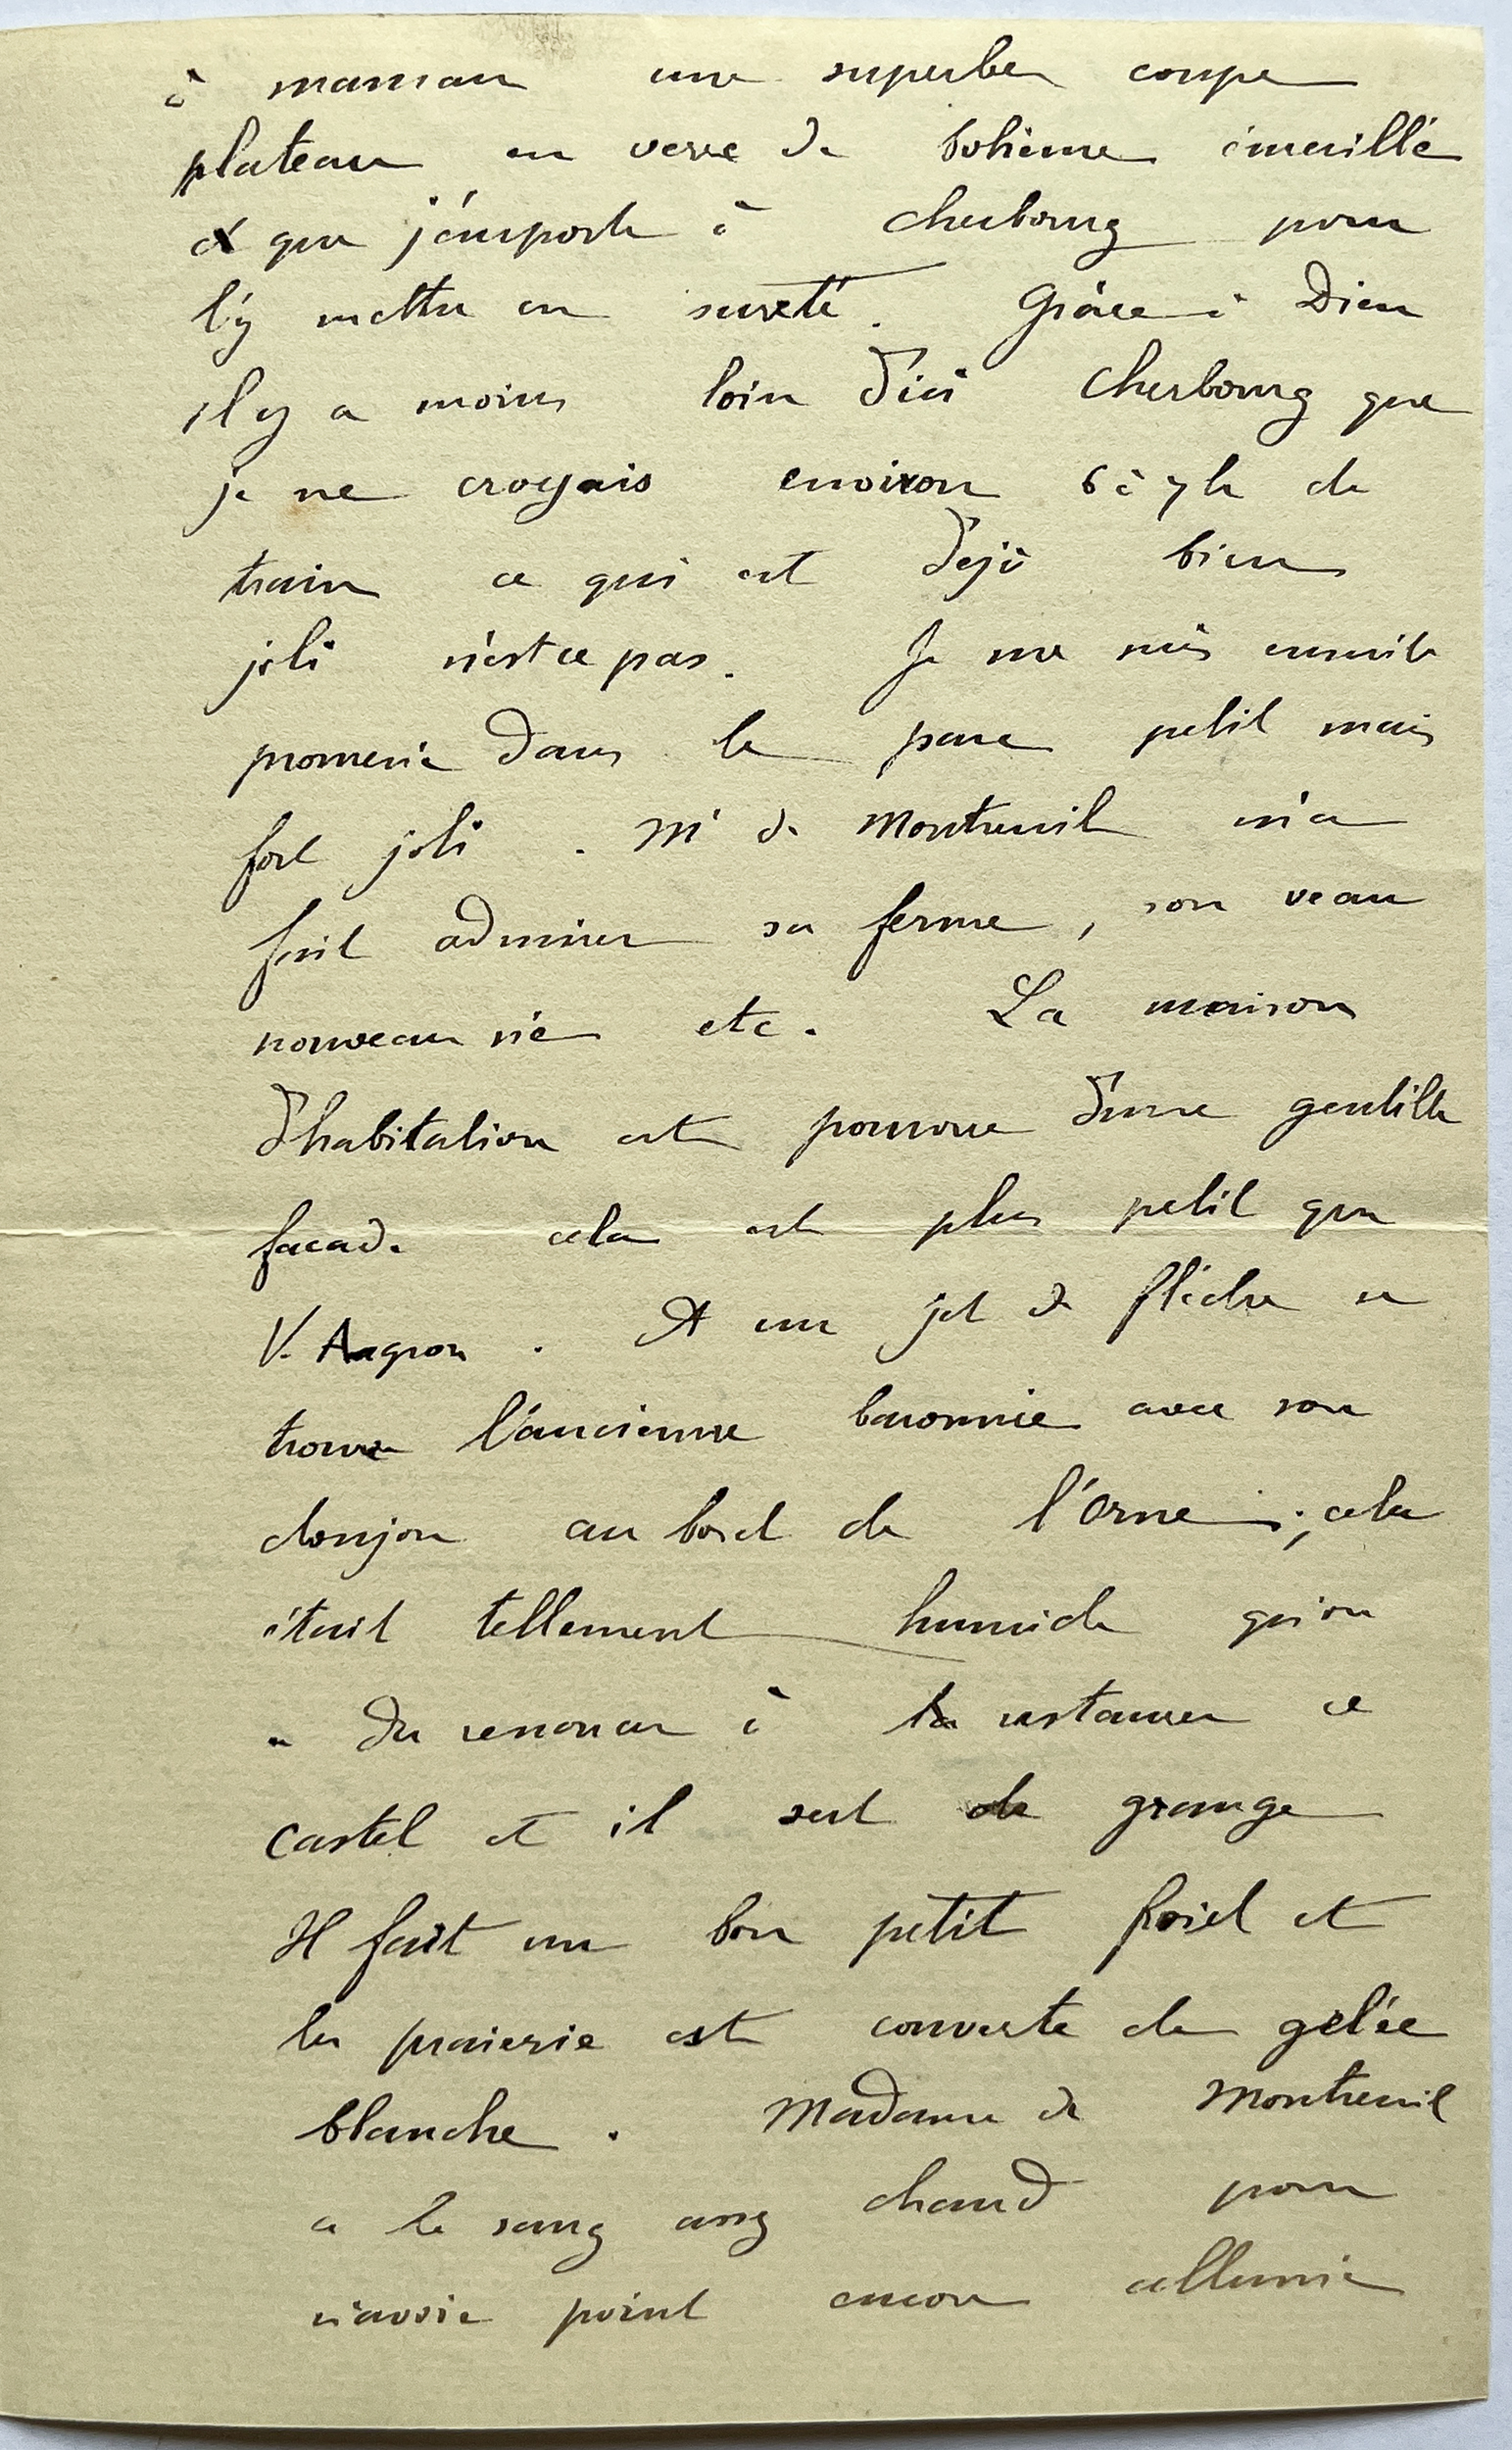 à maman une superbe coupe
plateau en verre de bohême émaillé
et que j'emporte à Cherbourg pour
l'y mettre en sureté. Grâce à Dieu
il y a moins loin d'ici Cherbourg que
je ne croyais environ 6 à 7h de
train ce qui est déjà bien
joli n'est ce pas. Je me suis ensuite
promené dans le parc petit mais
fort joli. Mr de Montreuil m'a
fait admirer sa ferme, son veau
nouveau né etc. La maison
d'habitation est pourvue d'une gentille
facade cela est plus petit que
V. A un jet de flèche se
trouve l'ancienne baronnie avec son
donjon au bord de l'Orne ; cela
était tellement humide qu'on
a du renoncer à restaurer ce
castel et il sert de grange
Il fait un bon petit froid et
la prairie est couverte de gelée
blanche. Madame de Montreuil
a le sang assez chaud pour
n'avoir point encore allumé